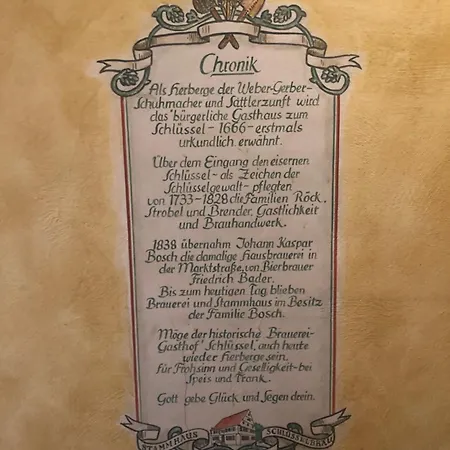 Chronik
Als Herberge der Weber-Gerber-
Schuhmacher und Sattlerzunft wird
das bürgerliche Gasthaus zum
Schlüssel - 1666 - erstmals
urkundlich erwähnt.
Über dem Eingang den eisernen
Schlüssel - als Zeichen der
Schlüsselgewalt - pflegten
von 1733-1828 die Familien Röck,
Strobel und Brender, Gastlichkeit
und Brauhandwerk.
1838 übernahm Johann Kaspar
Bosch die damalige Hausbrauerei in
der Marktstraße, von Bierbrauer
Friedrich Bader.
Bis zum heutigen Tag blieben
Brauerei und Stammhaus im Besitz
der Familie Bosch.
Möge der historische Brauerei-
Gasthof "Schlüssel", auch heute
wieder Herberge sein.
für Frohsinn und Geselligkeit - bei
Speis und Trank.
Gott gebe Glück und Segen drein.
STAMMHAUS SCHLÜSSELBRÄU